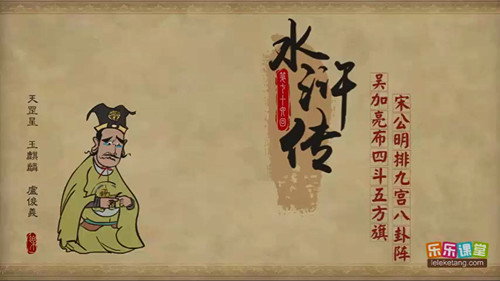 水浒传
第七十六回
吴加亮布四斗五方旗
宋公明排九宫八卦阵
天罡星 玉麒麟 盧俊義
乐乐课堂
leleketang.com